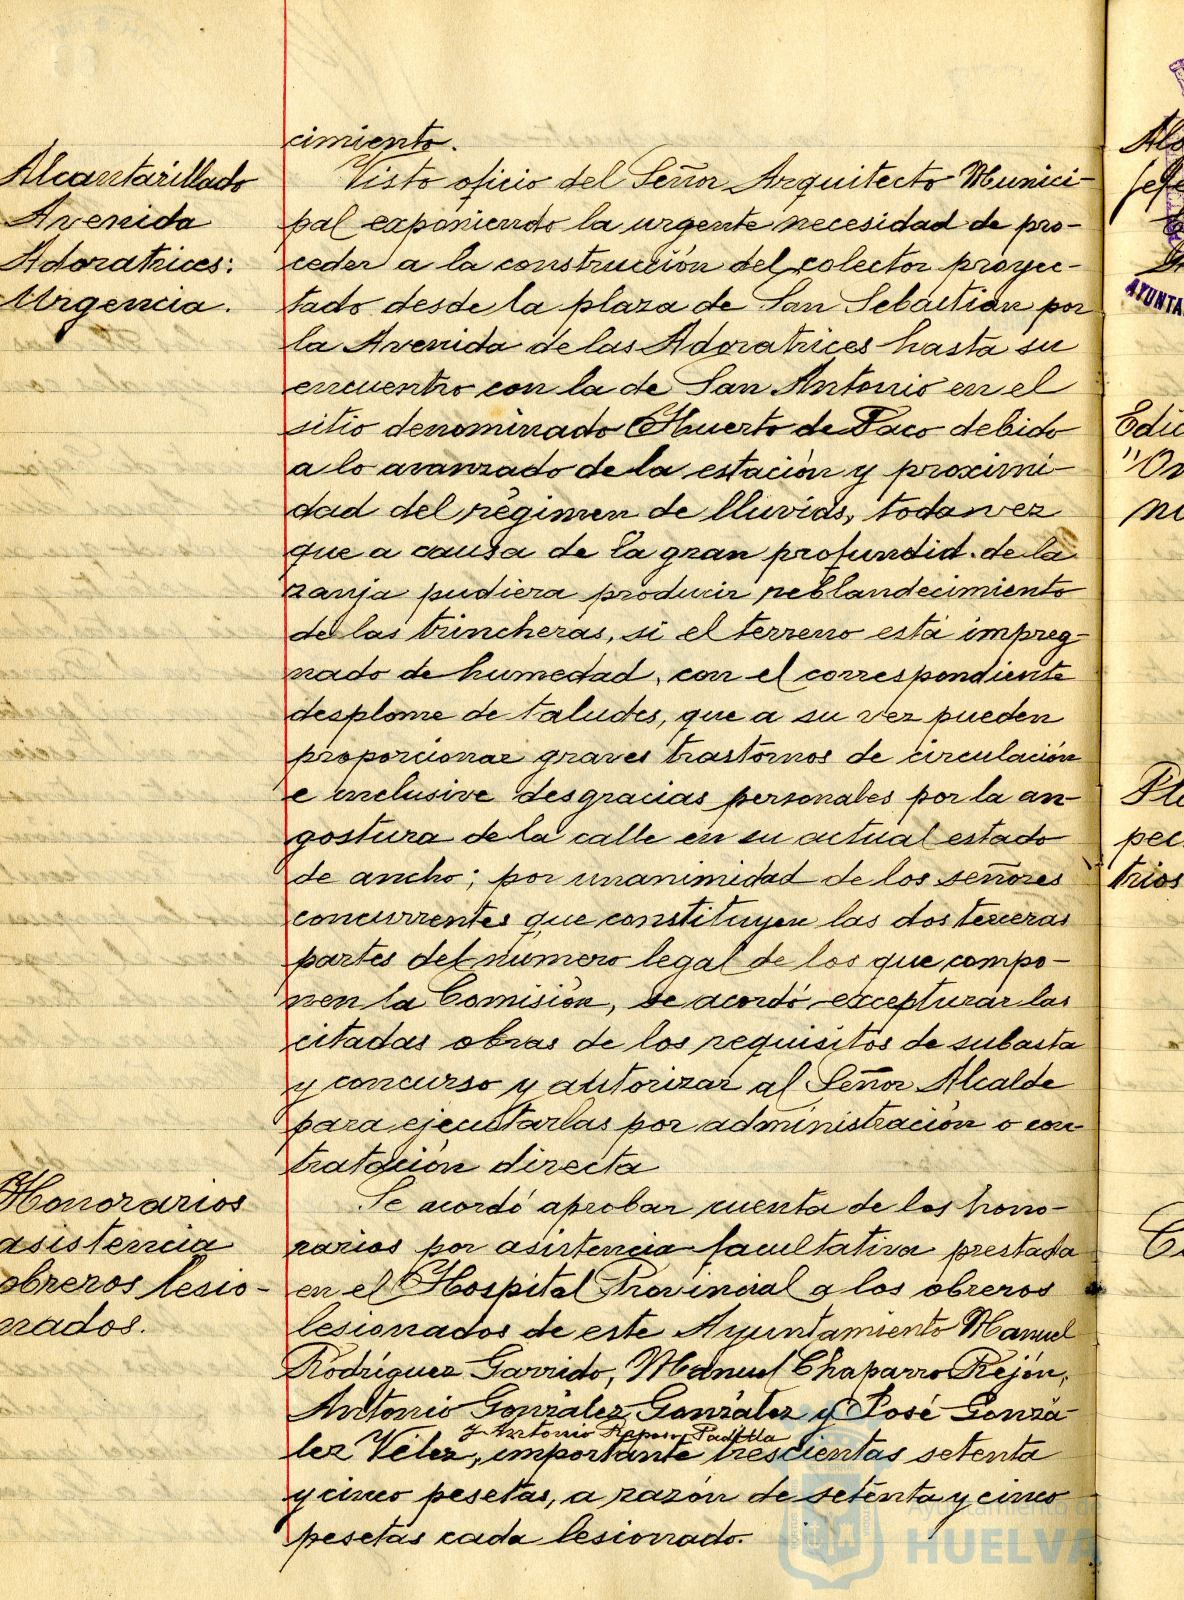 cimiento.
Alcantarillado
Avenida
Adoratrices:
Urgencia.
Visto oficio del Señor Arquitecto Munici-
pal exponiendo la urgente necesidad de pro-
ceder a la construcción del colector proyec-
tado desde la plaza de San Sebastian por
la Avenida de las Adoratrices hasta su
encuentro con la de San Antonio en el
sitio denominado Huerto de Paco debido
a lo avanzado de la estación y proximi-
dad del régimen de lluvias, toda vez
que a causa de la gran profundid. de la
zanja pudiera producir reblandecimiento
de las trincheras, si el terreno está impreg-
nado de humedad, con el correspondiente
desplome de taludes, que a su vez pueden
proporcionar graves trastornos de circulación
e inclusive desgracias personales por la an-
gostura de la calle en su actual estado
de ancho; por unanimidad de los señores
concurrentes que constituyen las dos terceras
partes del número legal de los que compo-
nen la Comisión, se acordó excepturar las
citadas obras de los requisitos de subasta
y concurso y autorizar al Señor Alcalde
para ejecutarlas por administración o con
tratación directa
Honorarios
asistencia
obreros lesio-
nados.
Se acordó aprobar cuenta de los hono-
rarios por asistencia facultativa prestada
en el Hospital Provincial a los obreros
lesionados de este Ayuntamiento Manuel
Rodríguez Garrido, Manuel Chaparro Rejón,
Antonio González González y José Gonzá-
y Antonio Raposo Padilla
lez Vélez, importante trescientas setenta
y cinco pesetas, a razón de setenta y cinco
pesetas cada lesionado.
AYUNTA
Edic
pec
trios
Ayuntamiento de
HUELVA